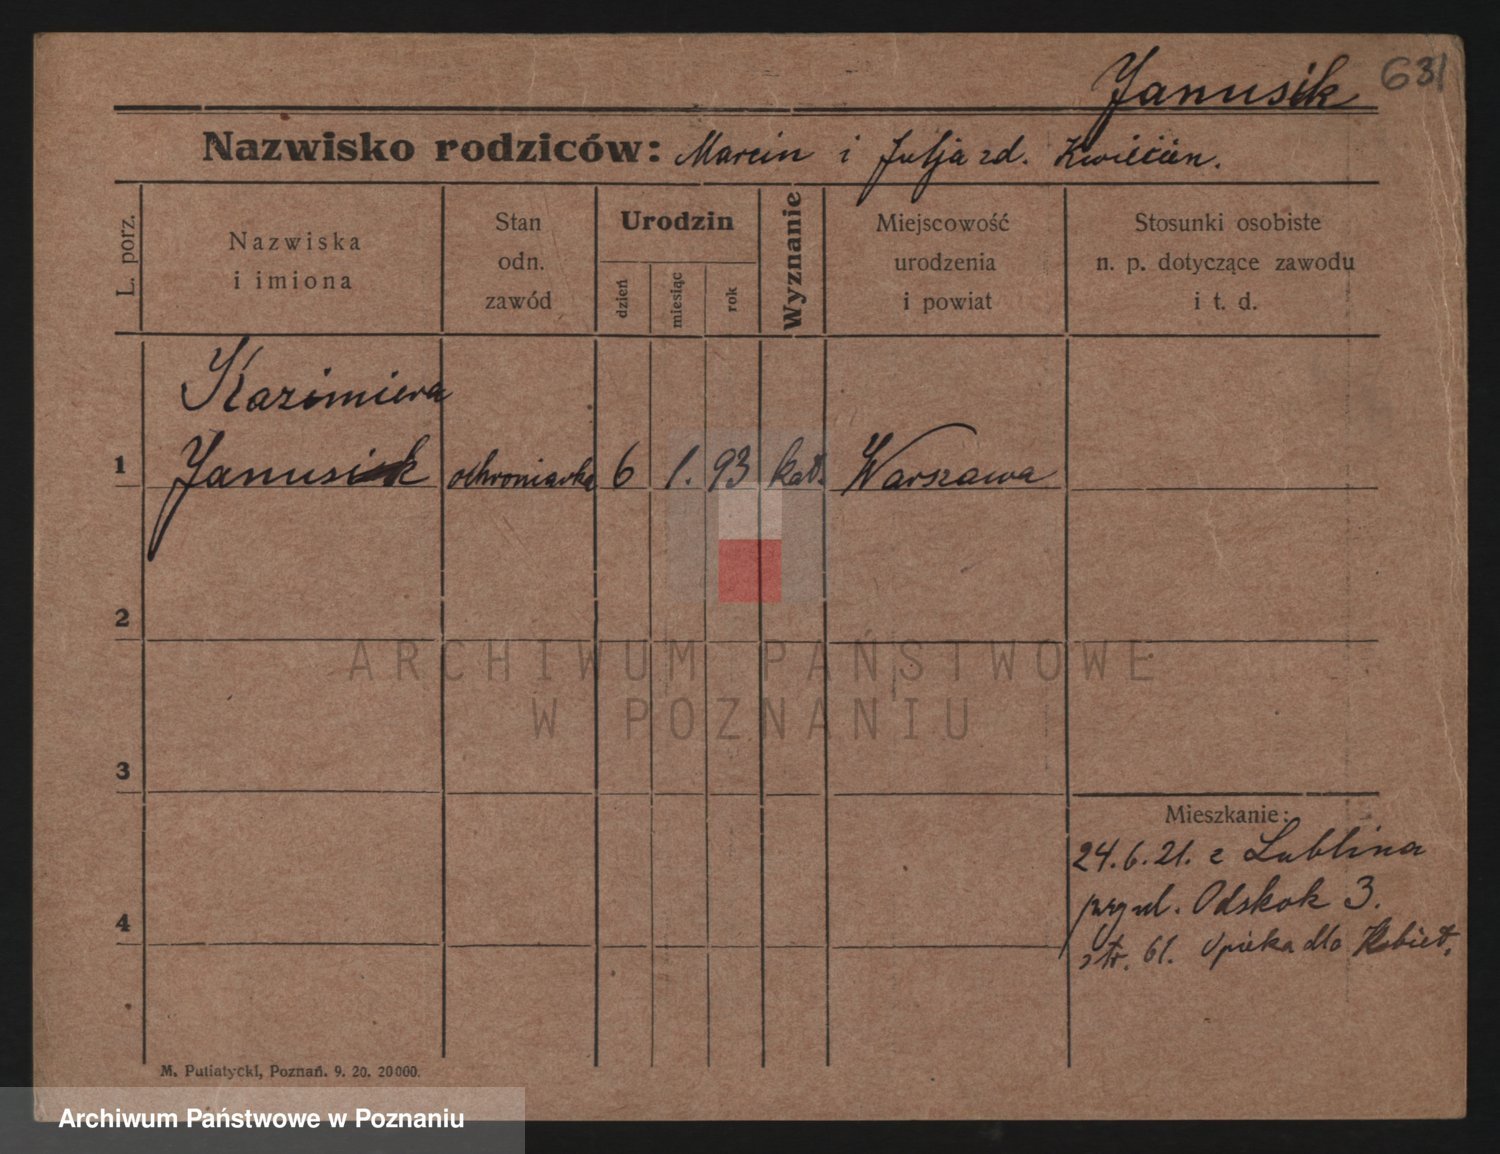 Janusik 631
Nazwisko rodziców: Marcin i Julja zd. Kwiecień.
L. porz.
Nazwiska
i imiona
Stan
odn.
zawód
Urodzin
dzień
miesiąc
rok
Wyznanie
Miejscowość
urodzenia
i powiat
Stosunki osobiste
n. p. dotyczące zawodu
i t. d.
Kazimiera
1 Janusik ochroniarka 6 1. 93 kat. Warszawa
2
ARCHIWUM PAŃSTWOWE
W POZNANIU
3
Mieszkanie:
24.6.21. z Lublina
Odskok 3.
4
str. 61. Opieka dla Kobiet.
M. Putiatycki, Poznań. 9. 20. 20000.
Archiwum Państwowe w Poznaniu